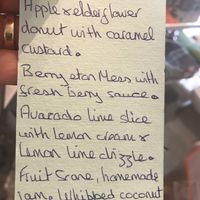 Apple & elderflower
donut with caramel
custard.
Berry eton Mess with
fresh berry sauce.
Avacado lime slice
with lemon cream &
Lemon lime drizzle.
Fruit Scone, homemade
jam, Whipped coconut